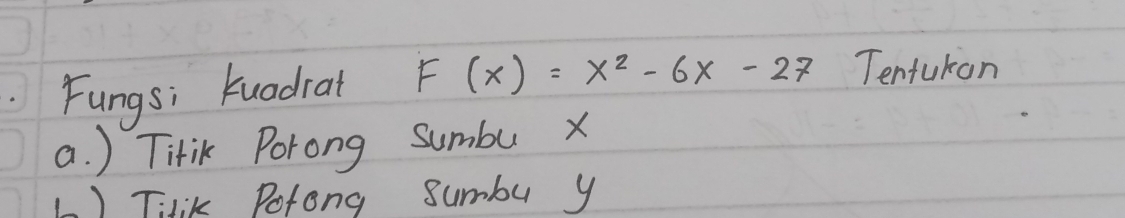 Fungsi Kuadrat F (x) = x² - 6x - 27 Tentukan
a.) Titik Potong Sumbu X
b) Titik Potong Sumbu y